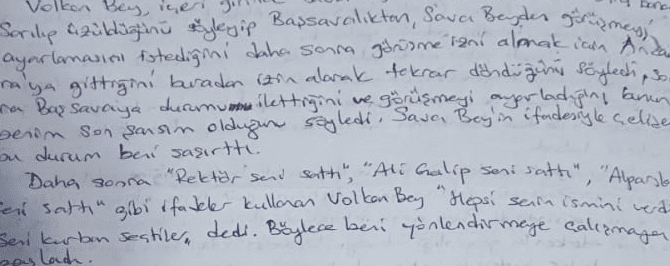 Volkan Bey, içeri
Sarılıp üzüldüğünü söyleyip Başsavcılıktan, Savcı Beyden görüşmeyi
ayarlamasını istediğini daha sonra görüşme izni almak için Anka
ra'ya gittiğini buradan izin alarak tekrar döndüğünü söyledi, so
ra Başsavcıya durumu ilettiğini ve görüşmeyi ayarladığını, bunun
benim son şansım olduğunu söyledi. Savcı Bey'in ifadesiyle çelişe
bu durum beni şaşırttı.
Daha sonra "Rektör seni sattı", "Ali Galip seni sattı", "Alparsla
seni sattı" gibi ifadeler kullanan Volkan Bey "Hepsi senin ismini verdi
Seni kurban seçtiler, dedi. Böylece beni yönlendirmeye çalışmaya
başladı.